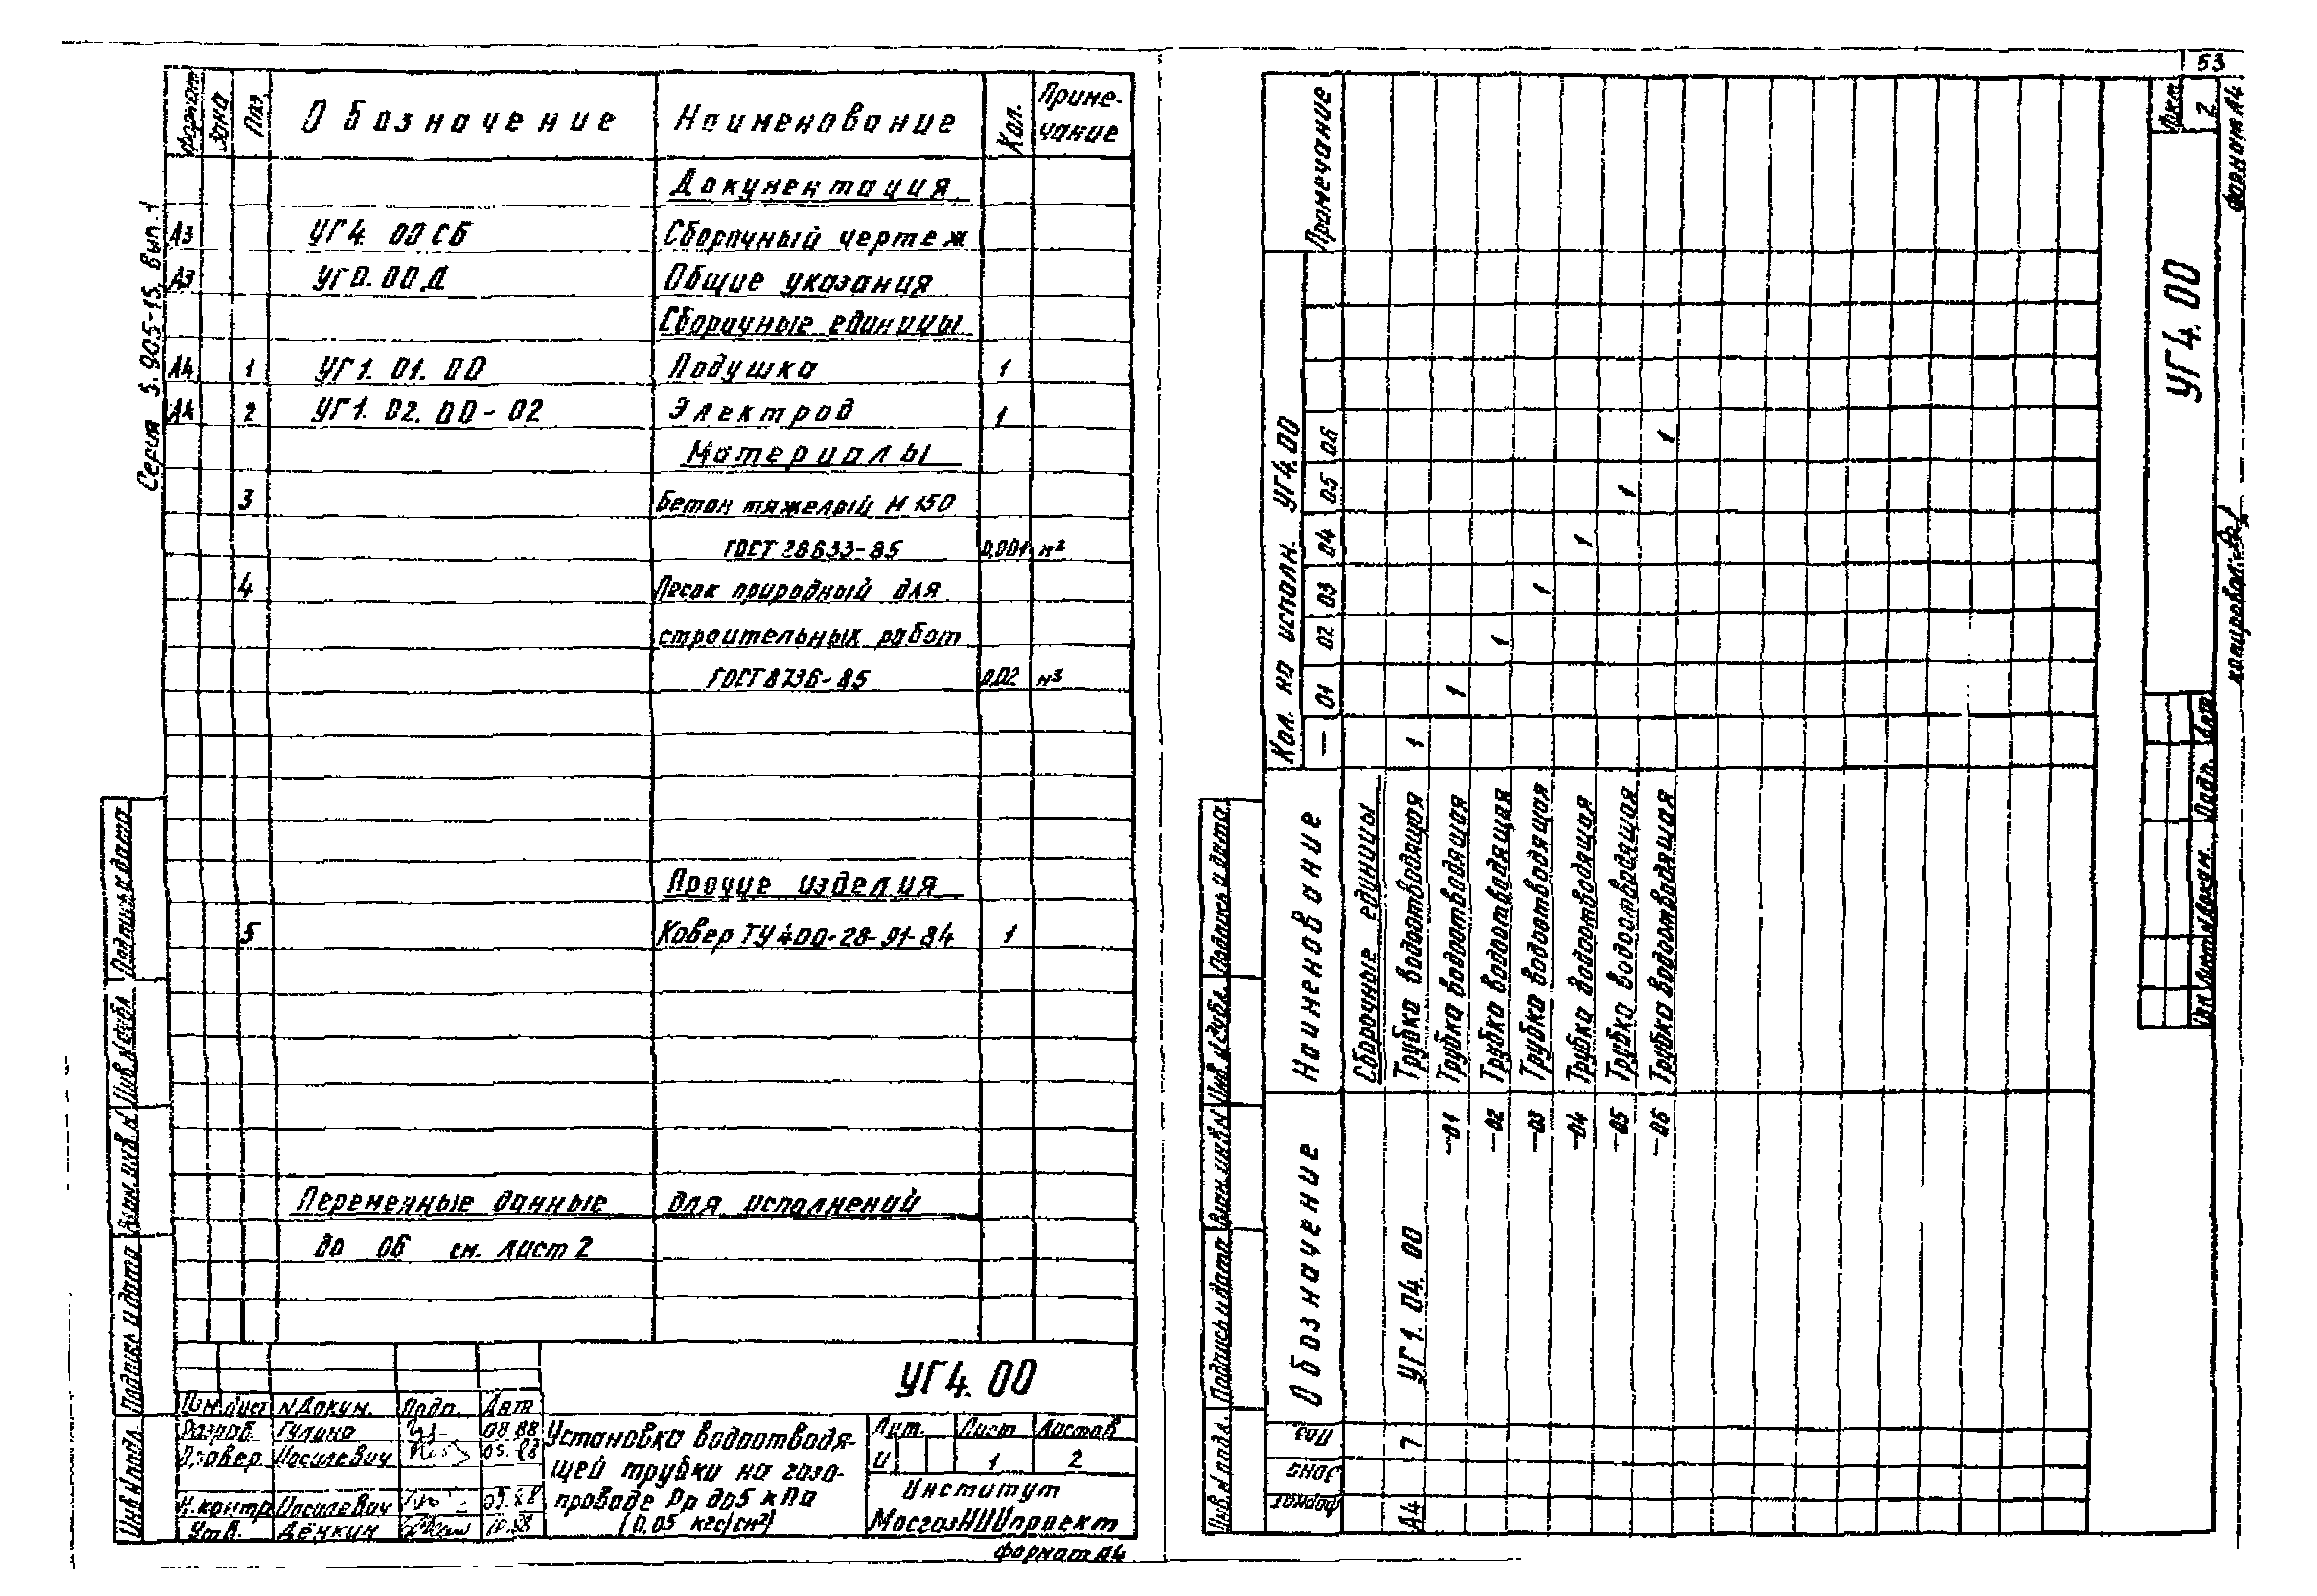 53
Серия 5.905-15. вып. 1
Формат Зона Поз. Обозначение Наименование Кол. Примечание
Документация
А3 УГ4. 00 СБ Сборочный чертеж
А3 УГ0. 00 Д Общие указания
Сборочные единицы
А4 1 УГ1. 01. 00 Подушка 1
А4 2 УГ1. 02. 00-02 Электрод 1
Материалы
3 Бетон тяжелый М 150
ГОСТ 28633-85 0,001 м³
4 Песок природный для
строительных работ
ГОСТ 8736-85 0,02 м³
Прочие изделия
5 Ковер ТУ 400-28-91-84 1
Переменные данные для исполнений
до 06 см. лист 2
Подпись и дата
Инв. N дубл.
Взам. инв. N
Подпись и дата
Инв N подл.
УГ4. 00
Изм. Лист N Докум. Подп. Дата
Разраб. Гулина 08.88
Провер. Иосилевич 09.88
Н.контр. Иосилевич 09.88
Утв. Дёнкин 10.88
Установка водоотводя-
щей трубки на газо-
проводе Pp до 5 кПа
(0,05 кгс/см²)
Лит. Лист Листов
И 1 2
Институт
МосгазНИИпроект
формат А4
Формат Зона Поз. Обозначение Наименование Кол. на исполн. УГ4. 00 Примечание
— 01 02 03 04 05 06
Сборочные единицы
А4 7 УГ1. 04. 00 Трубка водоотводящая 1
-01 Трубка водоотводящая 1
-02 Трубка водоотводящая 1
-03 Трубка водоотводящая 1
-04 Трубка водоотводящая 1
-05 Трубка водоотводящая 1
-06 Трубка водоотводящая 1
Инв. N подл. Подпись и дата Взам. инв. N Инв. N дубл. Подпись и дата
Изм Лист N докум. Подп. Дата
УГ4. 00
Лист
2
копировал:
формат А4